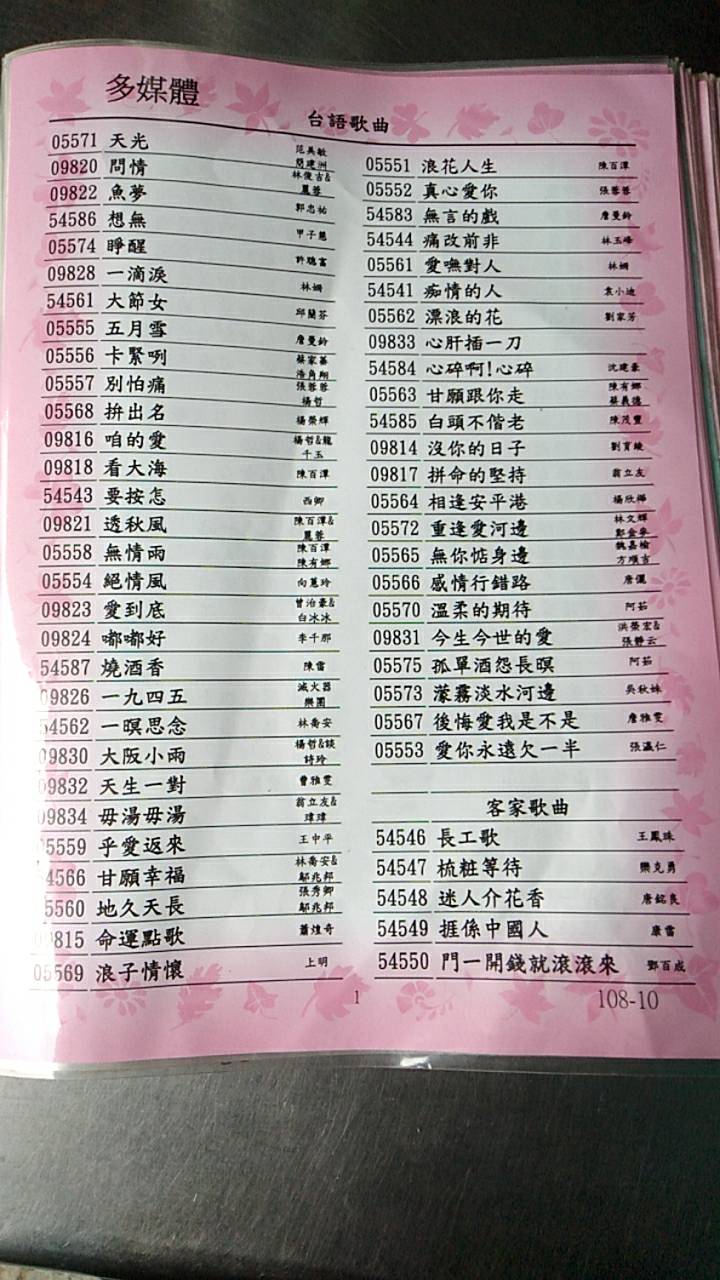 多媒體
台語歌曲
05571 天光 范美敏
09820 問情 簡建洲
09822 魚夢 林俊吉& 鳳蓉
54586 想無 郭忠祐
05574 睜醒 甲子慧
09828 一滴淚 許聰富
54561 大節女 林姍
05555 五月雪 邱蘭芬
05556 卡緊咧 詹曼鈴
05557 別怕痛 蔡家蓁 浩角翔
05568 拚出名 張蓉蓉 楊哲
09816 咱的愛 楊榮輝
09818 看大海 楊哲&龍千玉
54543 要按怎 陳百潭
09821 透秋風 西卿
05558 無情雨 陳百潭& 鳳蓉
05554 絕情風 陳百潭 陳有娜
09823 愛到底 向蕙玲
09824 嘟嘟好 曾治豪& 白冰冰
54587 燒酒香 李千那
09826 一九四五 陳雷
54562 一暝思念 滅火器 樂團
09830 大阪小雨 林喬安
09832 天生一對 楊哲&談詩玲
09834 毋湯毋湯 曹雅雯
05559 乎愛返來 翁立友& 瑋瑋
54566 甘願幸福 王中平
05560 地久天長 林喬安& 鄔兆邦
09815 命運點歌 張秀卿 鄔兆邦
05569 浪子情懷 蕭煌奇
上明
05551 浪花人生 陳百潭
05552 真心愛你 張蓉蓉
54583 無言的戲 詹曼鈴
54544 痛改前非 林玉峰
05561 愛嘸對人 林姍
54541 痴情的人 袁小迪
05562 漂浪的花 劉家芳
09833 心肝插一刀
54584 心碎啊!心碎 沈建豪
05563 甘願跟你走 陳有娜 蔡義德
54585 白頭不偕老 陳茂豐
09814 沒你的日子 劉育綾
09817 拼命的堅持 翁立友
05564 相逢安平港 楊欣樺
05572 重逢愛河邊 林文輝 鄭金夆
05565 無你惦身邊 魏嘉榆 方順吉
05566 感情行錯路 唐儷
05570 溫柔的期待 阿茹
09831 今生今世的愛 洪榮宏& 張靜云
05575 孤單酒怨長暝 阿茹
05573 濛霧淡水河邊 吳秋姝
05567 後悔愛我是不是 詹雅雯
05553 愛你永遠欠一半 張瀛仁
客家歌曲
54546 長工歌 王鳳珠
54547 梳粧等待 樂克勇
54548 迷人介花香 唐銘良
54549 捱係中國人 康雷
54550 門一開錢就滾滾來 鄧百成
1
108-10